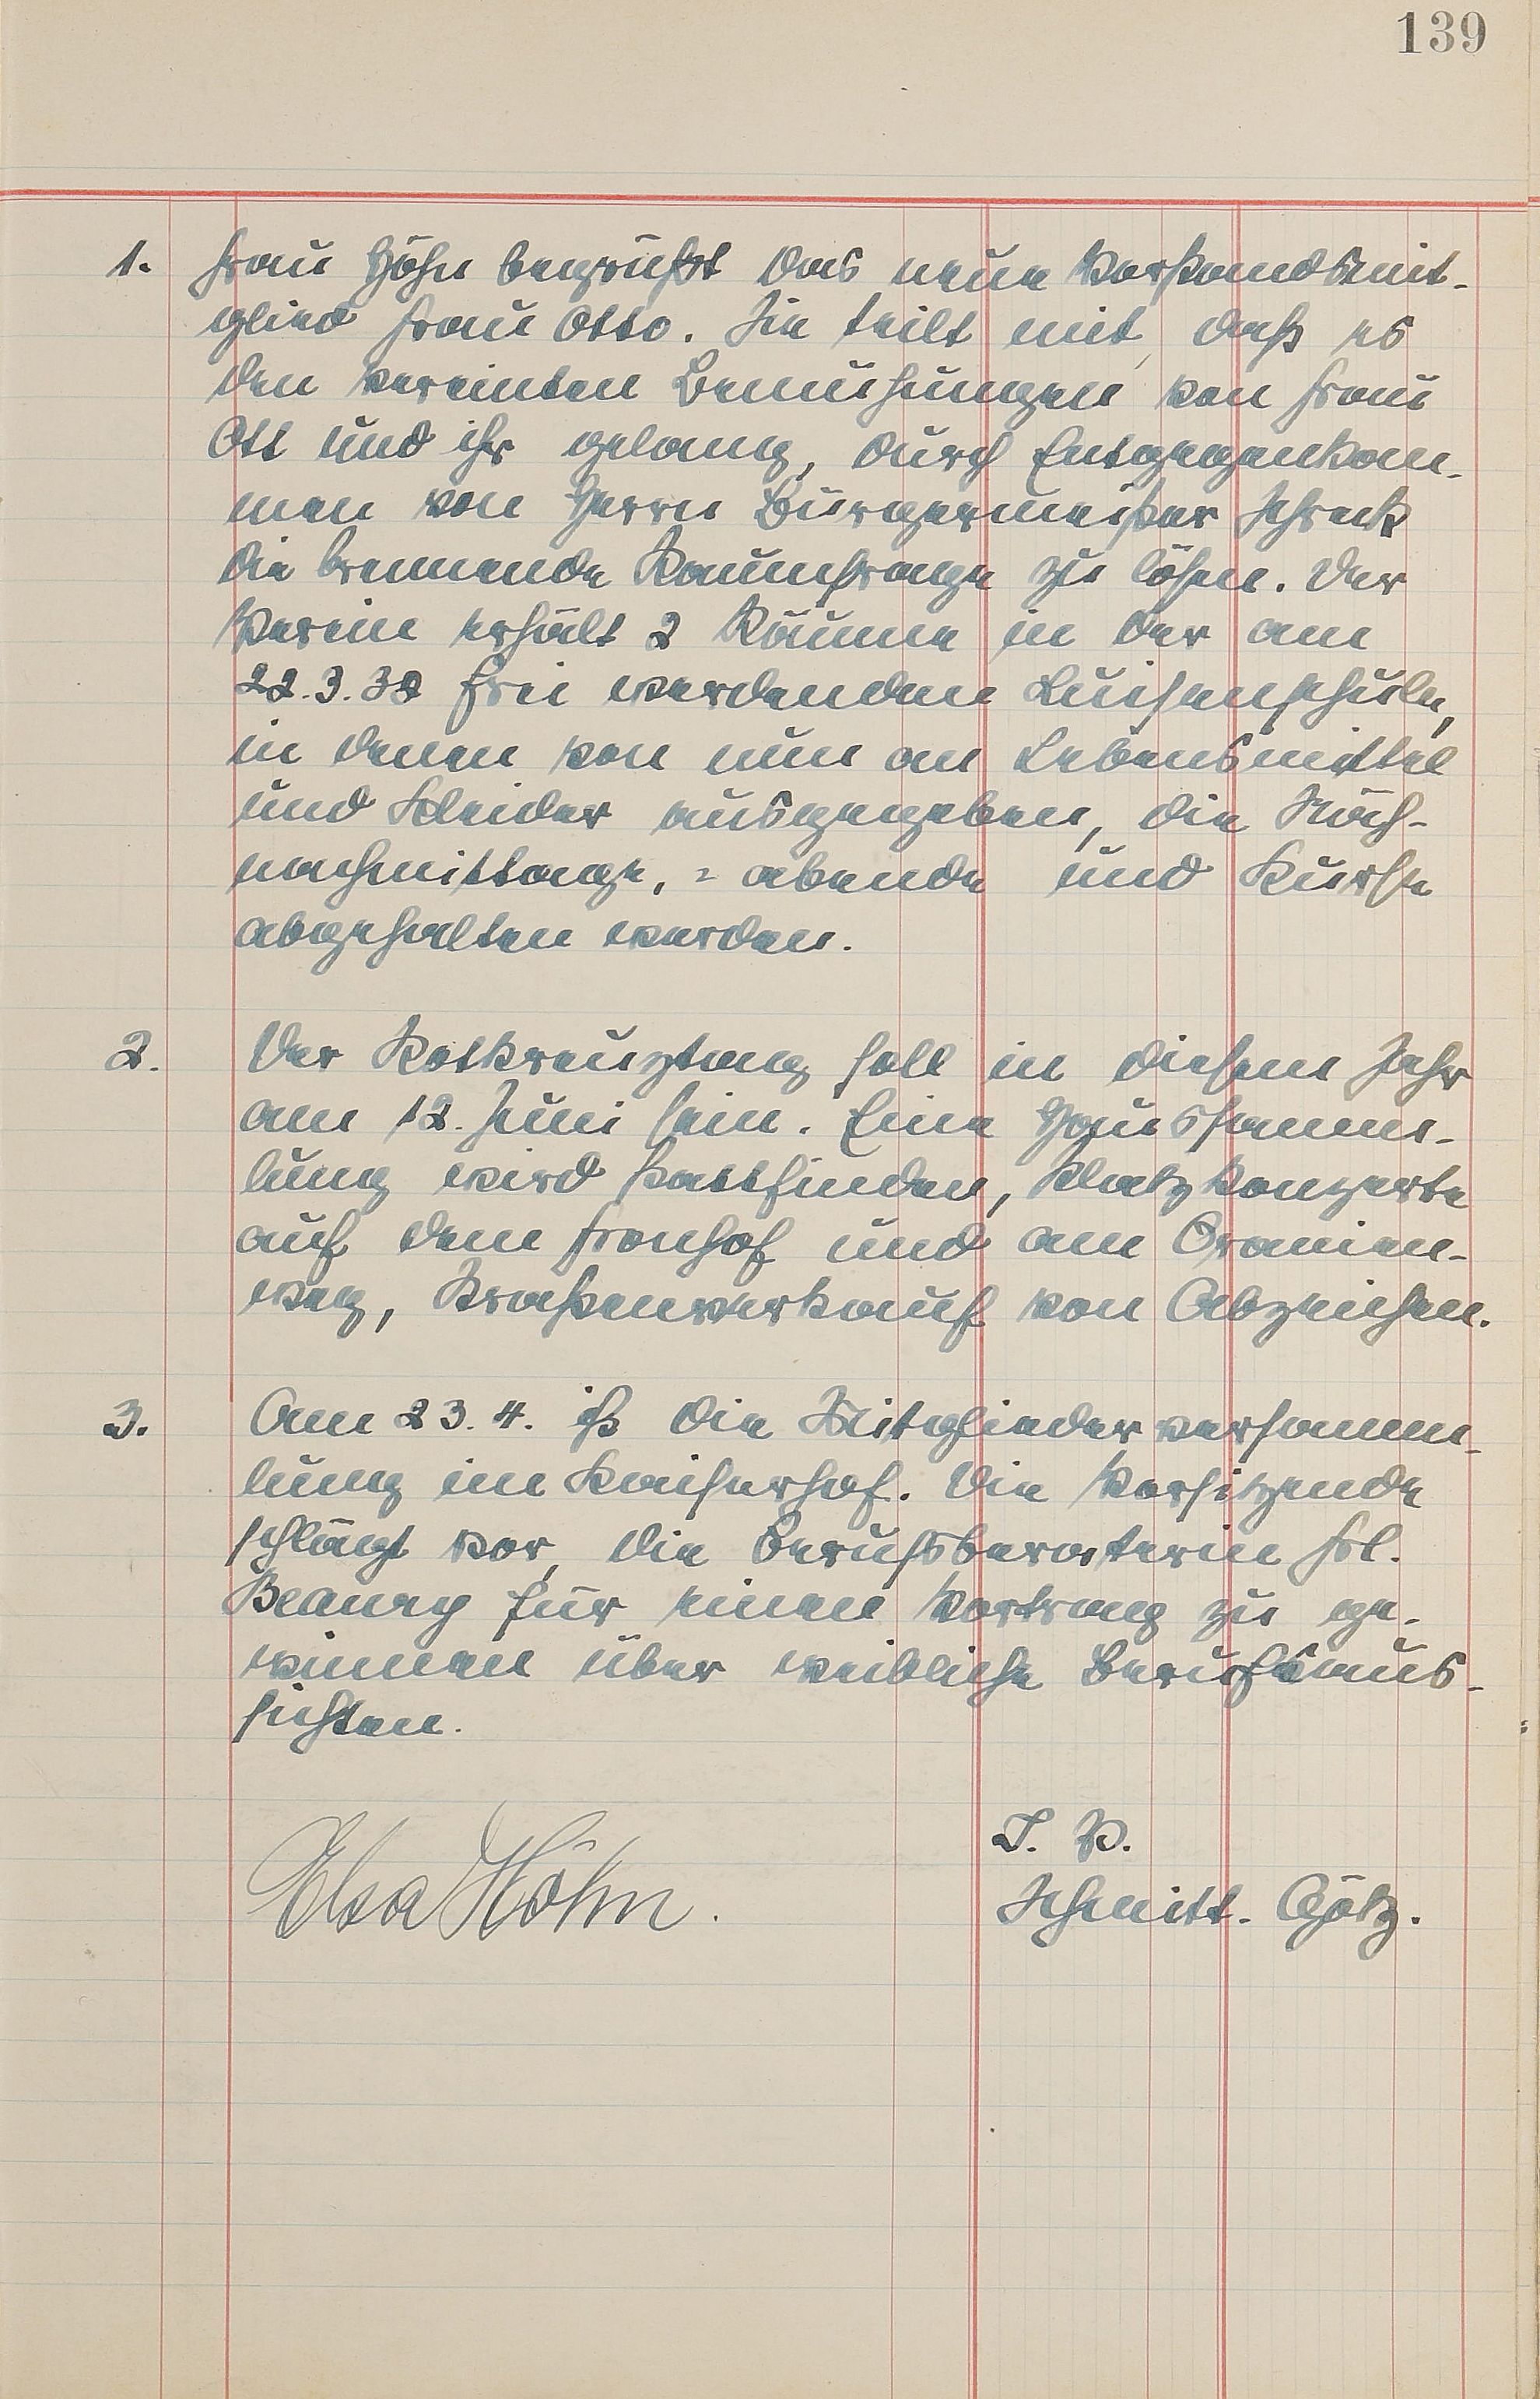 139
1. Frau Höhn begrüßt das neue Vorstandsmit-
glied Frau Otto. Sie teilt mit, daß es
den vereinten Bemühungen von Frau
Ott und ihr gelang, durch Entgegenkom-
men von Herrn Bürgermeister Schreck
die brennende Raumfrage zu lösen. Der
Verein erhält 2 Räume in der am
22.3.38 frei werdenden Luisenschule,
in denen von nun an Lebensmittel
und Kleider ausgegeben, die Näh-
nachmittage, = abende und Kurse
abgehalten werden.
2. Der Rotkreuztag soll in diesem Jahr
am 12. Juni sein. Eine Haussamm-
lung wird stattfinden, Platzkonzerte
auf dem Fronhof und am Oranien-
weg, Straßenverkauf von Abzeichen.
3. Am 23.4. ist die Mitgliederversamm-
lung im Kaiserhof. Die Vorsitzende
schlägt vor, die Berufsberaterin Frl.
Beaury für einen Vortrag zu ge-
winnen über weibliche Berufsaus-
sichten.
I. V.
Elsa Höhn. Schmitt-Götz.